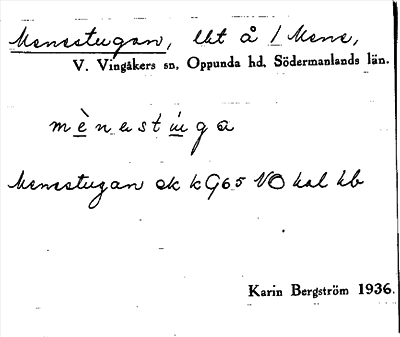 Menestugan, lht å 1 Mene,
V. Vingåkers sn, Oppunda hd, Södermanlands län.
mènestuga
Menestugan ek kG65 NO kal hb
Karin Bergström 1936.